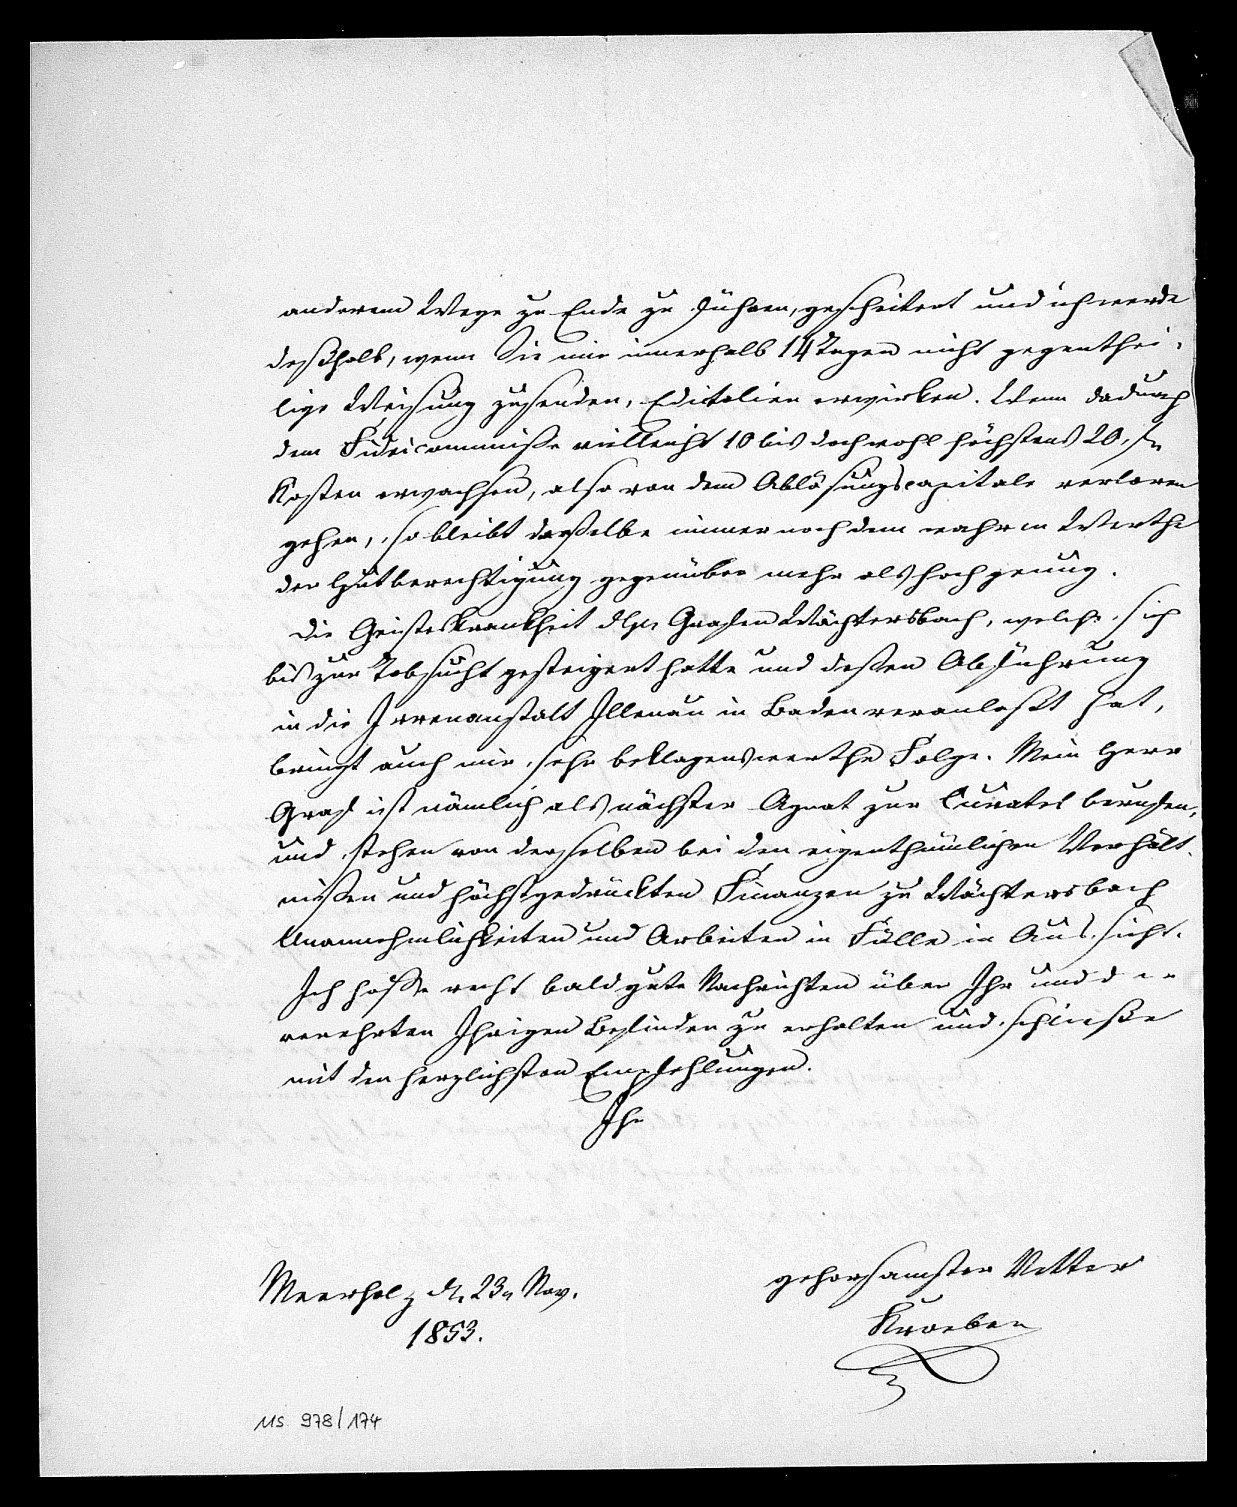 anderem Wege zu Ende zu führen, gescheitert und ich werde
deßhalb, wenn Sie mir innerhalb 14 Tagen nicht gegenthei-
lige Weisung zusenden, Edictalien erwirken. Wenn dadurch
dem Fideicommisse vielleicht 10 bis doch wohl höchstens 20
Kosten erwachsen, also von dem Ablösungscapitale verloren
gehen, so bleibt dasselbe immer noch dem wahren Werthe
der Hutberechtigung gegenüber mehr als hoch genug.
Die Geisteskrankheit des Grafen Wächtersbach, welche sich
bis zur Tobsucht gesteigert hatte und dessen Abführung
in die Irrenanstalt Illenau in Baden veranlaßt hat,
bringt auch mir sehr beklagenswerthe Folge. Mein Herr
Graf ist nämlich als nächster Agnat zur Curatel berufen,
und stehen von derselben bei den eigenthümlichen Verhält-
nissen und höchstgedrückten Finanzen zu Wächtersbach
Unannehmlichkeiten und Arbeiten in Fülle in Aussicht.
Ich hoffe recht bald gute Nachrichten über Ihr und der
verehrten Ihrigen Befinden zu erhalten und schließe
mit den herzlichsten Empfehlungen.
Ihr
gehorsamster Vetter
Kroeber
Meerholz d. 23n Nov.
1853.
MS 978/174